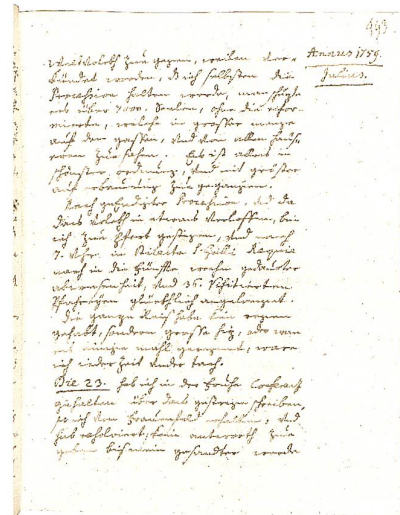 443
Annus 1759.
Julius.
Volckh zue gegen, weilen ver-
kündet worden, dß ich selbsten die
Procession halten werde, man schezte
es über 7000. Seelen, ohne die refor-
mierten, welche in grosser menge
auf den gassen, und von allen häus-
eren zue sahen. Es ist alles in
schönster ordnung, und mit gröster
auf erbauung zue gegangen.
Nach geendigter Procession, da
das Volckh in etwas verloffen, bin
ich zue Pferdt gestigen, und nach
7. Uhr in
nach in die fünffte wochen gedaurter
abwesenheit, und 36. Visitierten
Pfarreyen glückhlich angelanget.
die ganze Reis habe kein regen
gehabt, sondern grosse hiz, oder wan
es einige mahl geregnet, ware
ich ieder Zeit under tach.
Die 23. hab ich in der fruhe
gehalten über das gestrige schreiben,
so ich von Frauenfeld erhalten, und
hab resolviert, kein antworth zue
geben gesandter werde